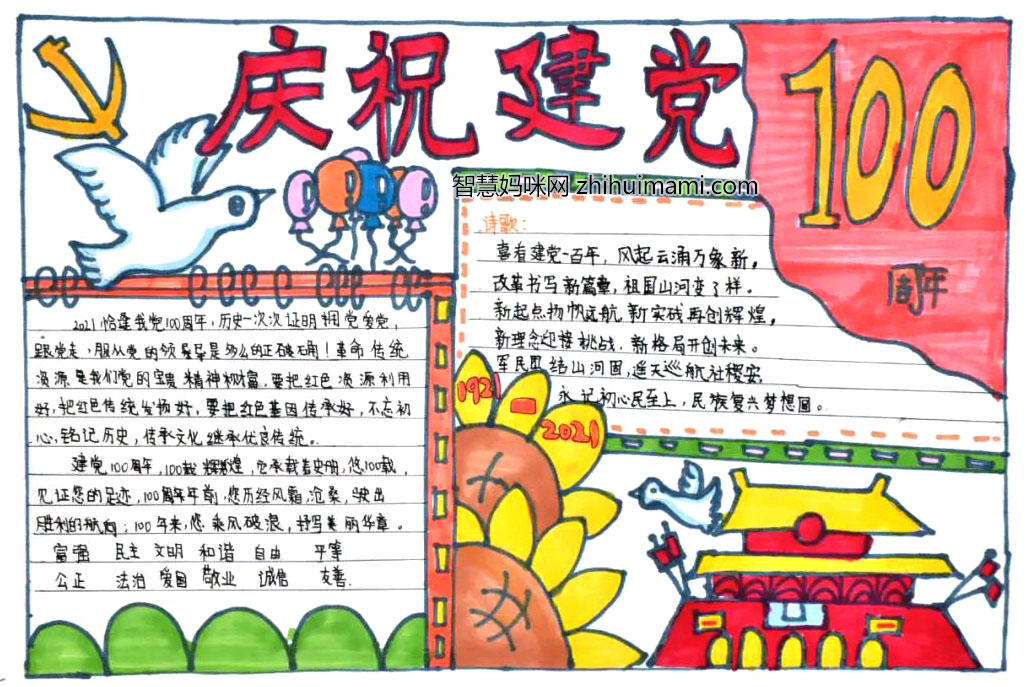 庆祝建党
100
周年
智慧妈咪网 zhihuimami.com
诗歌：
喜看建党一百年，风起云涌万象新。
改革书写新篇章，祖国山河变了样。
新起点扬帆远航，新实践再创辉煌。
新理念迎接挑战，新格局开创未来。
军民团结山河固，遥天巡航社稷安
永记初心民至上，民族复兴梦想圆。
1921-2021
2021恰逢我党100周年，历史一次次证明拥党爱党，
跟党走，服从党的领导是多么的正确！革命传统
资源是我们党的宝贵精神财富，要把红色资源利用
好，把红色传统发扬好，要把红色基因传承好，不忘初
心，铭记历史，传承文化继承优良传统。
建党100周年，100载辉煌，它承载着史册，您100载，
见证您的足迹，100周年年前，您历经风霜，沧桑，驶出
胜利的航向；100年来，您乘风破浪，抒写美丽华章。
富强 民主 文明 和谐 自由 平等
公正 法治 爱国 敬业 诚信 友善